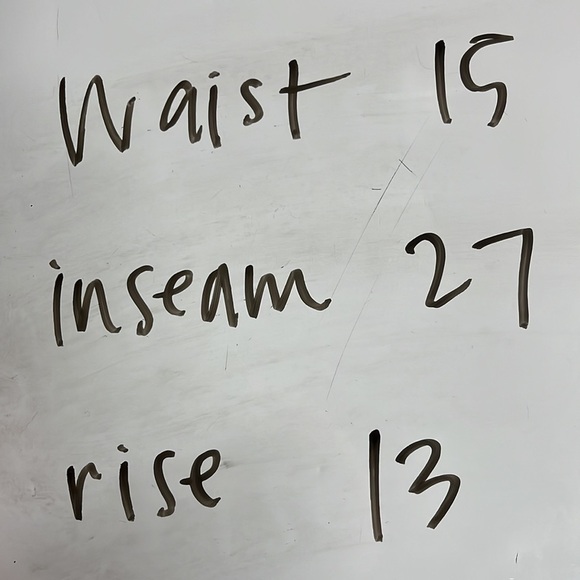 Waist 15
inseam 27
rise 13